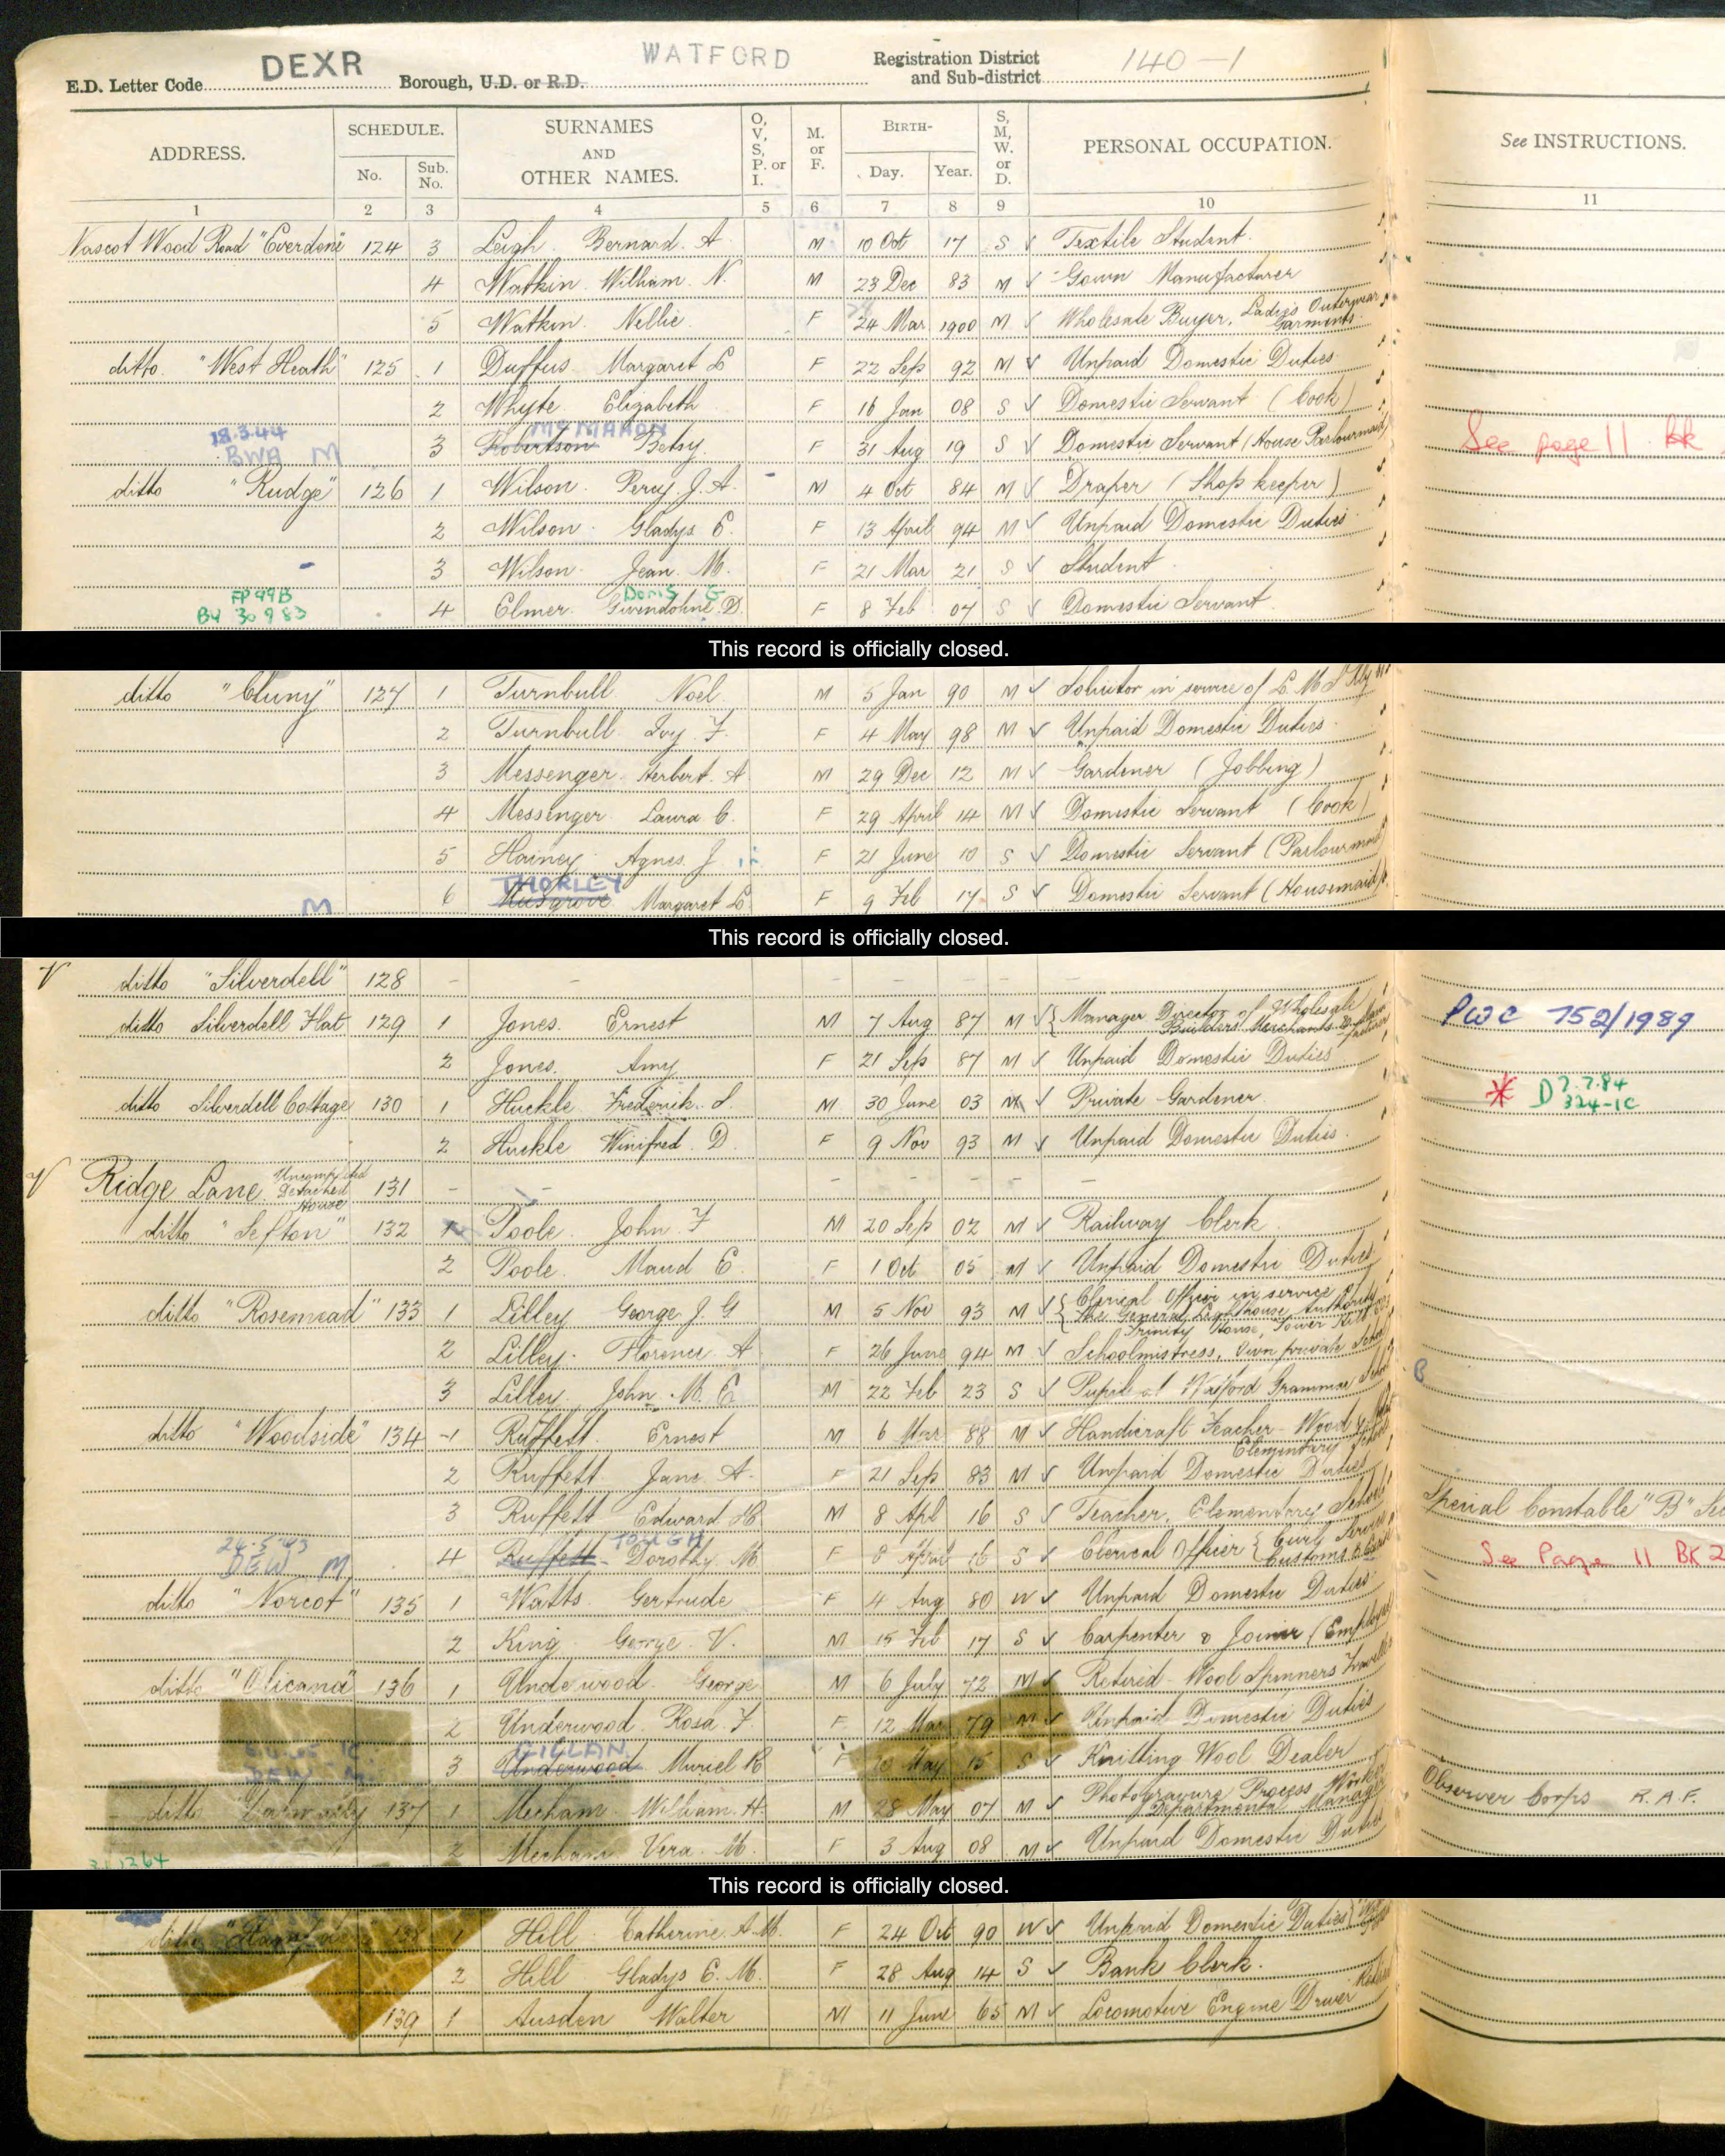 E.D. Letter Code DEXR Borough, U.D. or R.D. WATFORD Registration District and Sub-district 140-1
ADDRESS. SCHEDULE. No. Sub. No. SURNAMES AND OTHER NAMES. O, V, S, P. or I. M. or F. BIRTH- Day. Year. S, M, W. or D. PERSONAL OCCUPATION. See INSTRUCTIONS.
1 2 3 4 5 6 7 8 9 10 11
Nascot Wood Road "Everdene" 124 3 Leigh Bernard. A M 10 Oct 17 S ✓ Textile Student
4 Watkin William. N. M 23 Dec 83 M ✓ Gown Manufacturer
5 Watkin Nellie F 24 Mar 1900 M ✓ Wholesale Buyer, Ladies Outerwear Garments
ditto "West Heath" 125 1 Duffus Margaret L F 22 Sep 92 M ✓ Unpaid Domestic Duties
2 Whyte Elizabeth F 16 Jan 08 S ✓ Domestic Servant (Cook)
18.3.44 BWA M 3 Robertson McMAHON Betsy F 31 Aug 19 S ✓ Domestic Servant (House Parlourmaid) See page 11 Bk
ditto "Rudge" 126 1 Wilson Percy J. A. M 4 Oct 84 M ✓ Draper (Shop keeper)
2 Wilson Gladys E. F 13 April 94 M ✓ Unpaid Domestic Duties
3 Wilson Jean. M. F 21 Mar 21 S ✓ Student
FP99B Doris G
BU 30 9 83 4 Elmer Gwendoline D. F 8 Feb 07 S ✓ Domestic Servant
This record is officially closed.
ditto "Cluny" 127 1 Turnbull Noel M 5 Jan 90 M ✓ Solicitor in service of L. M. S Rly
2 Turnbull Ivy F. F 4 May 98 M ✓ Unpaid Domestic Duties
3 Messenger Herbert. A M 29 Dec 12 M ✓ Gardener (Jobbing)
4 Messenger Laura C. F 29 April 14 M ✓ Domestic Servant (Cook)
5 Hainey Agnes. J F 21 June 10 S ✓ Domestic Servant (Parlourmaid)
M 6 Musgrove THORLEY Margaret L. F 9 Feb 17 S ✓ Domestic Servant (Housemaid)
This record is officially closed.
V ditto "Silverdell" 128 - - - - - -
ditto Silverdell Flat 129 1 Jones. Ernest M 7 Aug 87 M ✓ { Manager Director of Wholesale Builders Merchants PWC 752/1989
2 Jones. Amy F 21 Sep 87 M ✓ Unpaid Domestic Duties
ditto Silverdell Cottage 130 1 Huckle Frederick. S. M 30 June 03 M ✓ Private Gardener * D 7.7.84 324-1C
2 Huckle Winifred. D. F 9 Nov 93 M ✓ Unpaid Domestic Duties
V Ridge Lane Uncompleted Detached House 131 - - - - - -
ditto "Sefton" 132 1 Poole John F M 20 Sep 02 M ✓ Railway Clerk
2 Poole Maud E F 1 Oct 05 M ✓ Unpaid Domestic Duties
ditto "Rosemead" 133 1 Lilley George J. G M 5 Nov 93 M ✓ { Clerical Officer in service of The General Lighthouse Authority Trinity House, Tower Hill
2 Lilley Florence. A F 26 June 94 M ✓ Schoolmistress, Own private School
3 Lilley John. M. E M 22 Feb 23 S ✓ Pupil at Watford Grammar School B
ditto "Woodside" 134 1 Ruffett Ernest M 6 Mar 88 M ✓ Handicraft Teacher - Wood Elementary School
2 Ruffett Jane. A. F 21 Sep 83 M ✓ Unpaid Domestic Duties
3 Ruffett Edward H. M 8 Apl 16 S ✓ Teacher, Elementary School Special Constable "B"
DEW M 4 Ruffett TOUGH Dorothy. M F 8 April 16 S ✓ Clerical Officer { Civil Service Customs & See Page 11 BK 2
ditto "Norcot" 135 1 Watts Gertrude F 4 Aug 80 W ✓ Unpaid Domestic Duties
2 King George. V. M 15 Feb 17 S ✓ Carpenter & Joiner
ditto "Olicana" 136 1 Underwood George M 6 July 72 M ✓ Retired - Wool Spinners Traveller
2 Underwood Rosa F. F 12 Mar 79 M ✓ Unpaid Domestic Duties
DEW 3 Underwood GILLAN Muriel R F 10 May 15 S ✓ Knitting Wool Dealer
ditto 137 1 Mecham William. H. M 28 May 07 M ✓ Photogravure Process Worker Departmental Manager Observer Corps R.A.F.
2 Mecham Vera. M. F 3 Aug 08 M ✓ Unpaid Domestic Duties
This record is officially closed.
ditto 138 1 Hill Catherine. A. M. F 24 Oct 90 W ✓ Unpaid Domestic Duties
2 Hill Gladys E. M. F 28 Aug 14 S ✓ Bank Clerk.
139 1 Ausden Walter M 11 June 65 M ✓ Locomotive Engine Driver Retired